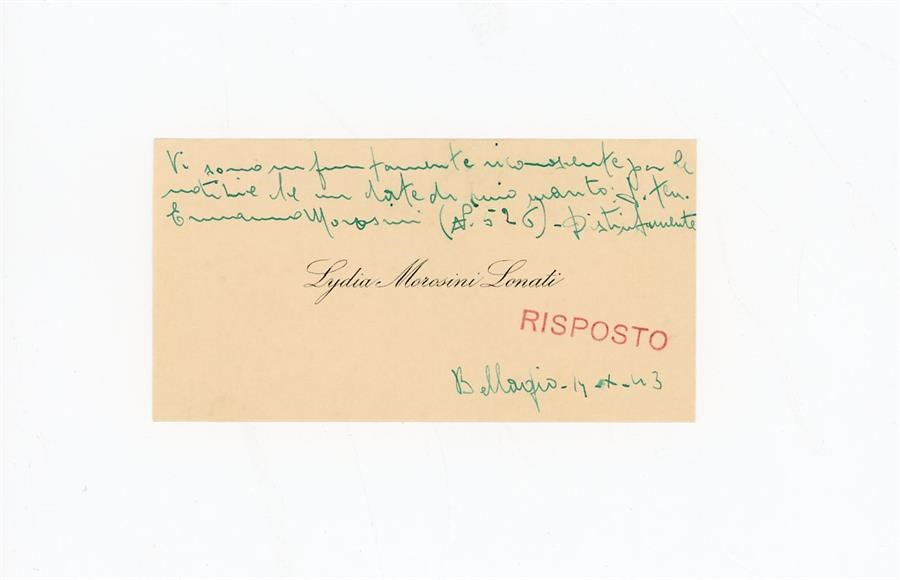 Vi sono infinitamente riconoscente per le
notizie di mio marito: S. Ten.
Ermanno Morosini (N. 526) - Distintamente
Lydia Morosini Lonati
RISPOSTO
Bellagio - 14 - X - 43